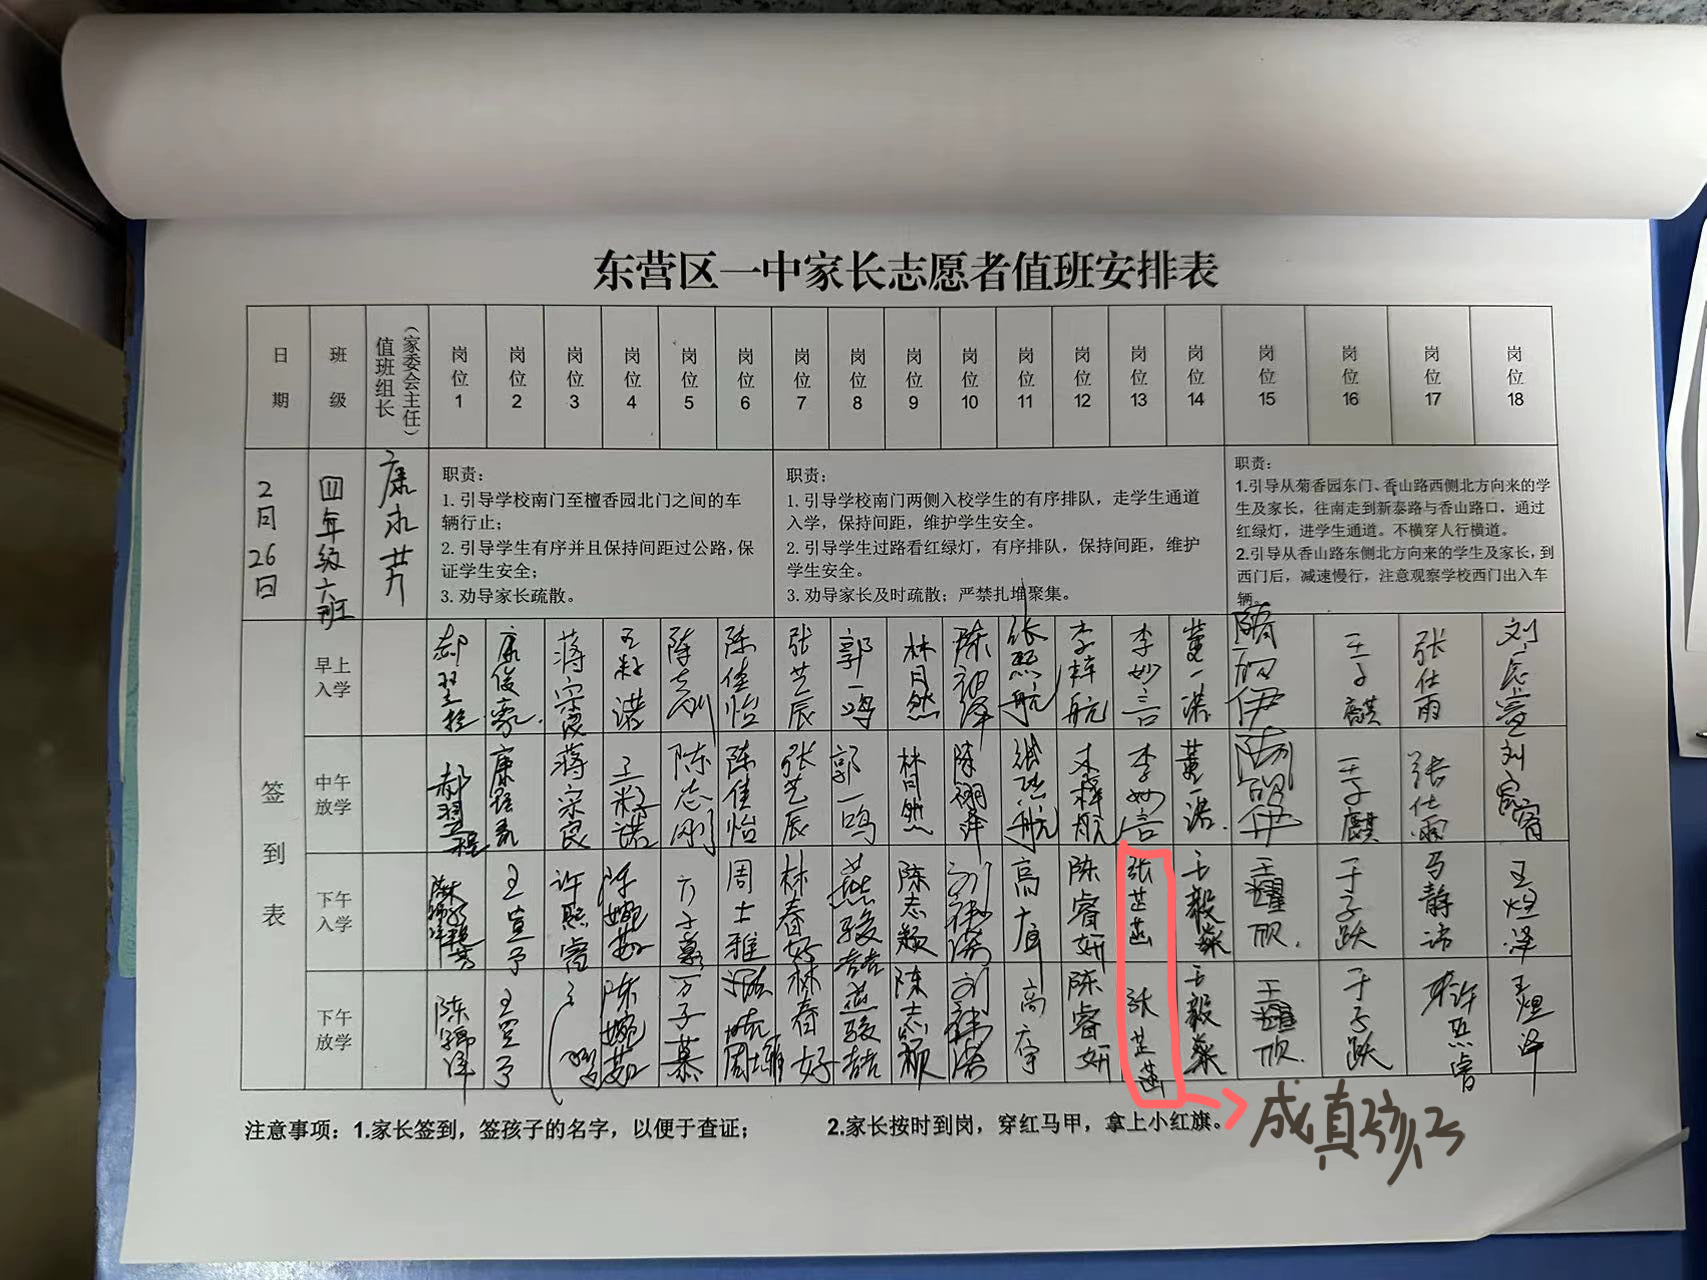 东营区一中家长志愿者值班安排表
日期 班级 值班组长（家委会主任） 岗位1 岗位2 岗位3 岗位4 岗位5 岗位6 岗位7 岗位8 岗位9 岗位10 岗位11 岗位12 岗位13 岗位14 岗位15 岗位16 岗位17 岗位18
2月26日 四年级六班 康永芳
职责：
1. 引导学校南门至檀香园北门之间的车
辆行止；
2. 引导学生有序并且保持间距过公路，保
证学生安全；
3. 劝导家长疏散。
职责：
1. 引导学校南门两侧入校学生的有序排队，走学生通道
入学，保持间距，维护学生安全。
2. 引导学生过路看红绿灯，有序排队，保持间距，维护
学生安全。
3. 劝导家长及时疏散；严禁扎堆聚集。
职责：
1.引导从菊香园东门、香山路西侧北方向来的学
生及家长，往南走到新泰路与香山路口，通过
红绿灯，进学生通道。不横穿人行横道。
2.引导从香山路东侧北方向来的学生及家长，到
西门后，减速慢行，注意观察学校西门出入车
辆。
签到表
早上入学 郝翌程 康俊豪 蒋宗良 王籽诺 陈志刚 陈佳怡 张艺辰 郭一鸣 林日然 陈诩泽 张熙航 李梓航 李妙言 董一诺 王子麒 张仕雨
中午放学 郝翌程 蒋宗良 王籽诺 陈志刚 陈佳怡 张艺辰 郭一鸣 林日然 陈诩泽 张熙航 李梓航 李妙言 董一诺 王子麒 张仕雨
下午入学 王宣予 许熙睿 陈婉茹 万子慕 周士雅 林春好 燕骏喆 陈志颖 刘祎诺 高广 陈睿妍 张芷菡 王毅燊 王耀欣 于子跃 马静沽 王煜泽
下午放学 陈锦泽 王宣予 陈婉茹 万子慕 林春好 燕骏喆 陈志颖 刘祎诺 陈睿妍 张芷菡 王毅燊 王耀欣 于子跃 许熙睿 王煜泽
注意事项：1.家长签到，签孩子的名字，以便于查证； 2.家长按时到岗，穿红马甲，拿上小红旗。
成真孩子